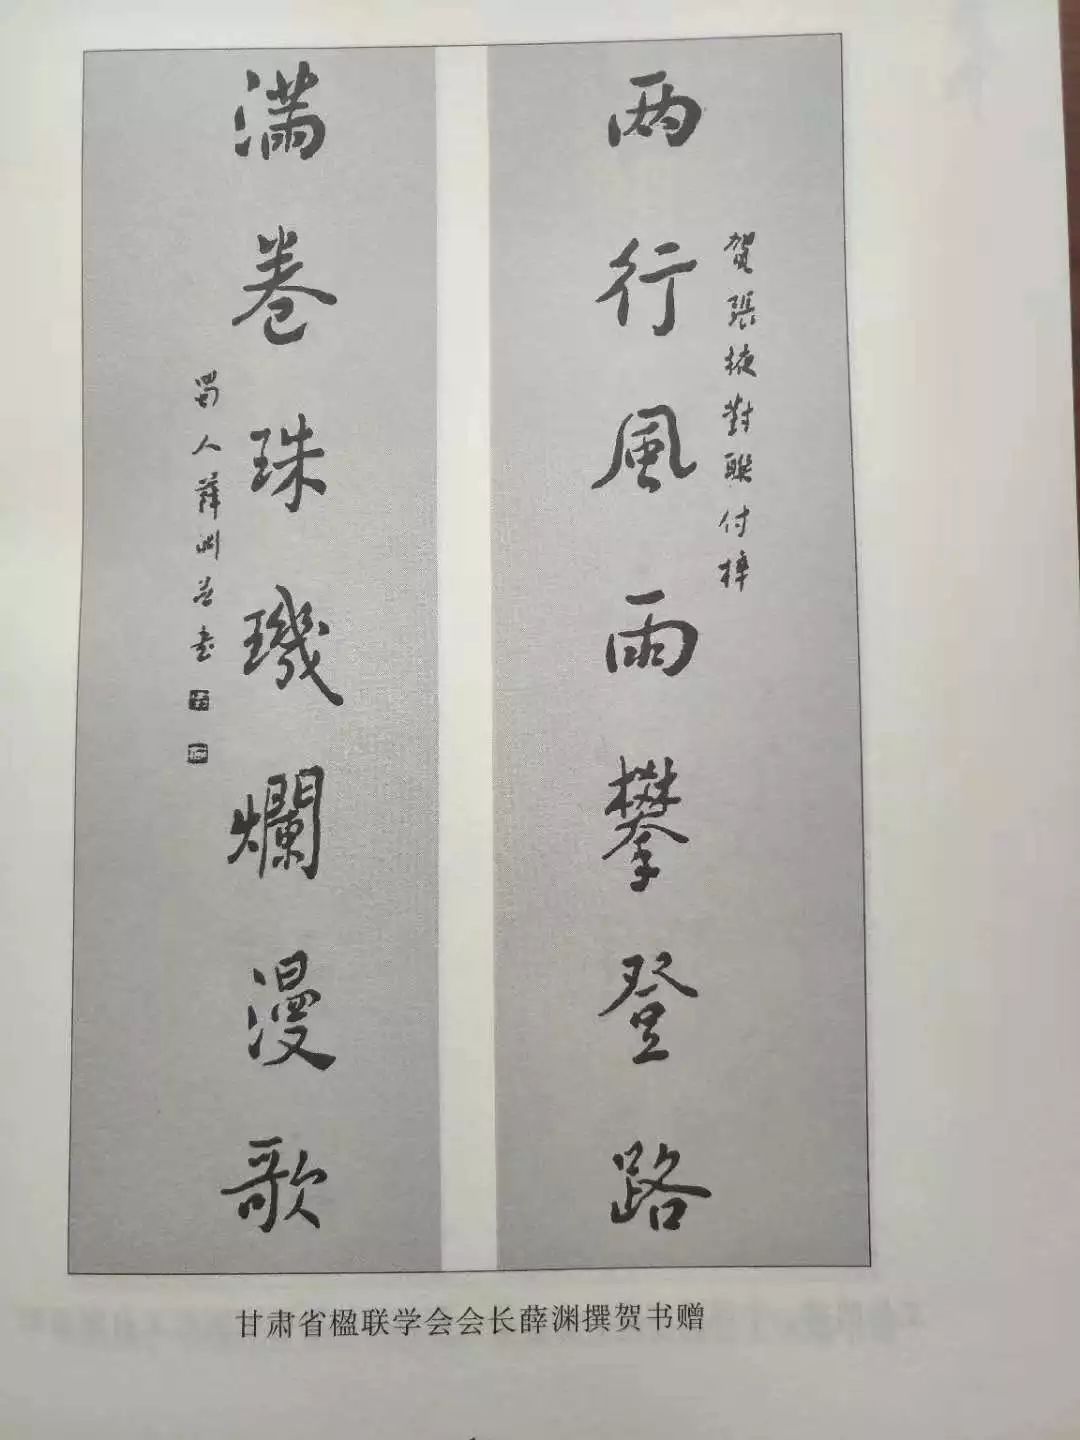 两行風雨攀登路
賀張掖對聯付梓
满卷珠璣爛漫歌
蜀人薛渊并书
甘肃省楹联学会会长薛渊撰贺书赠